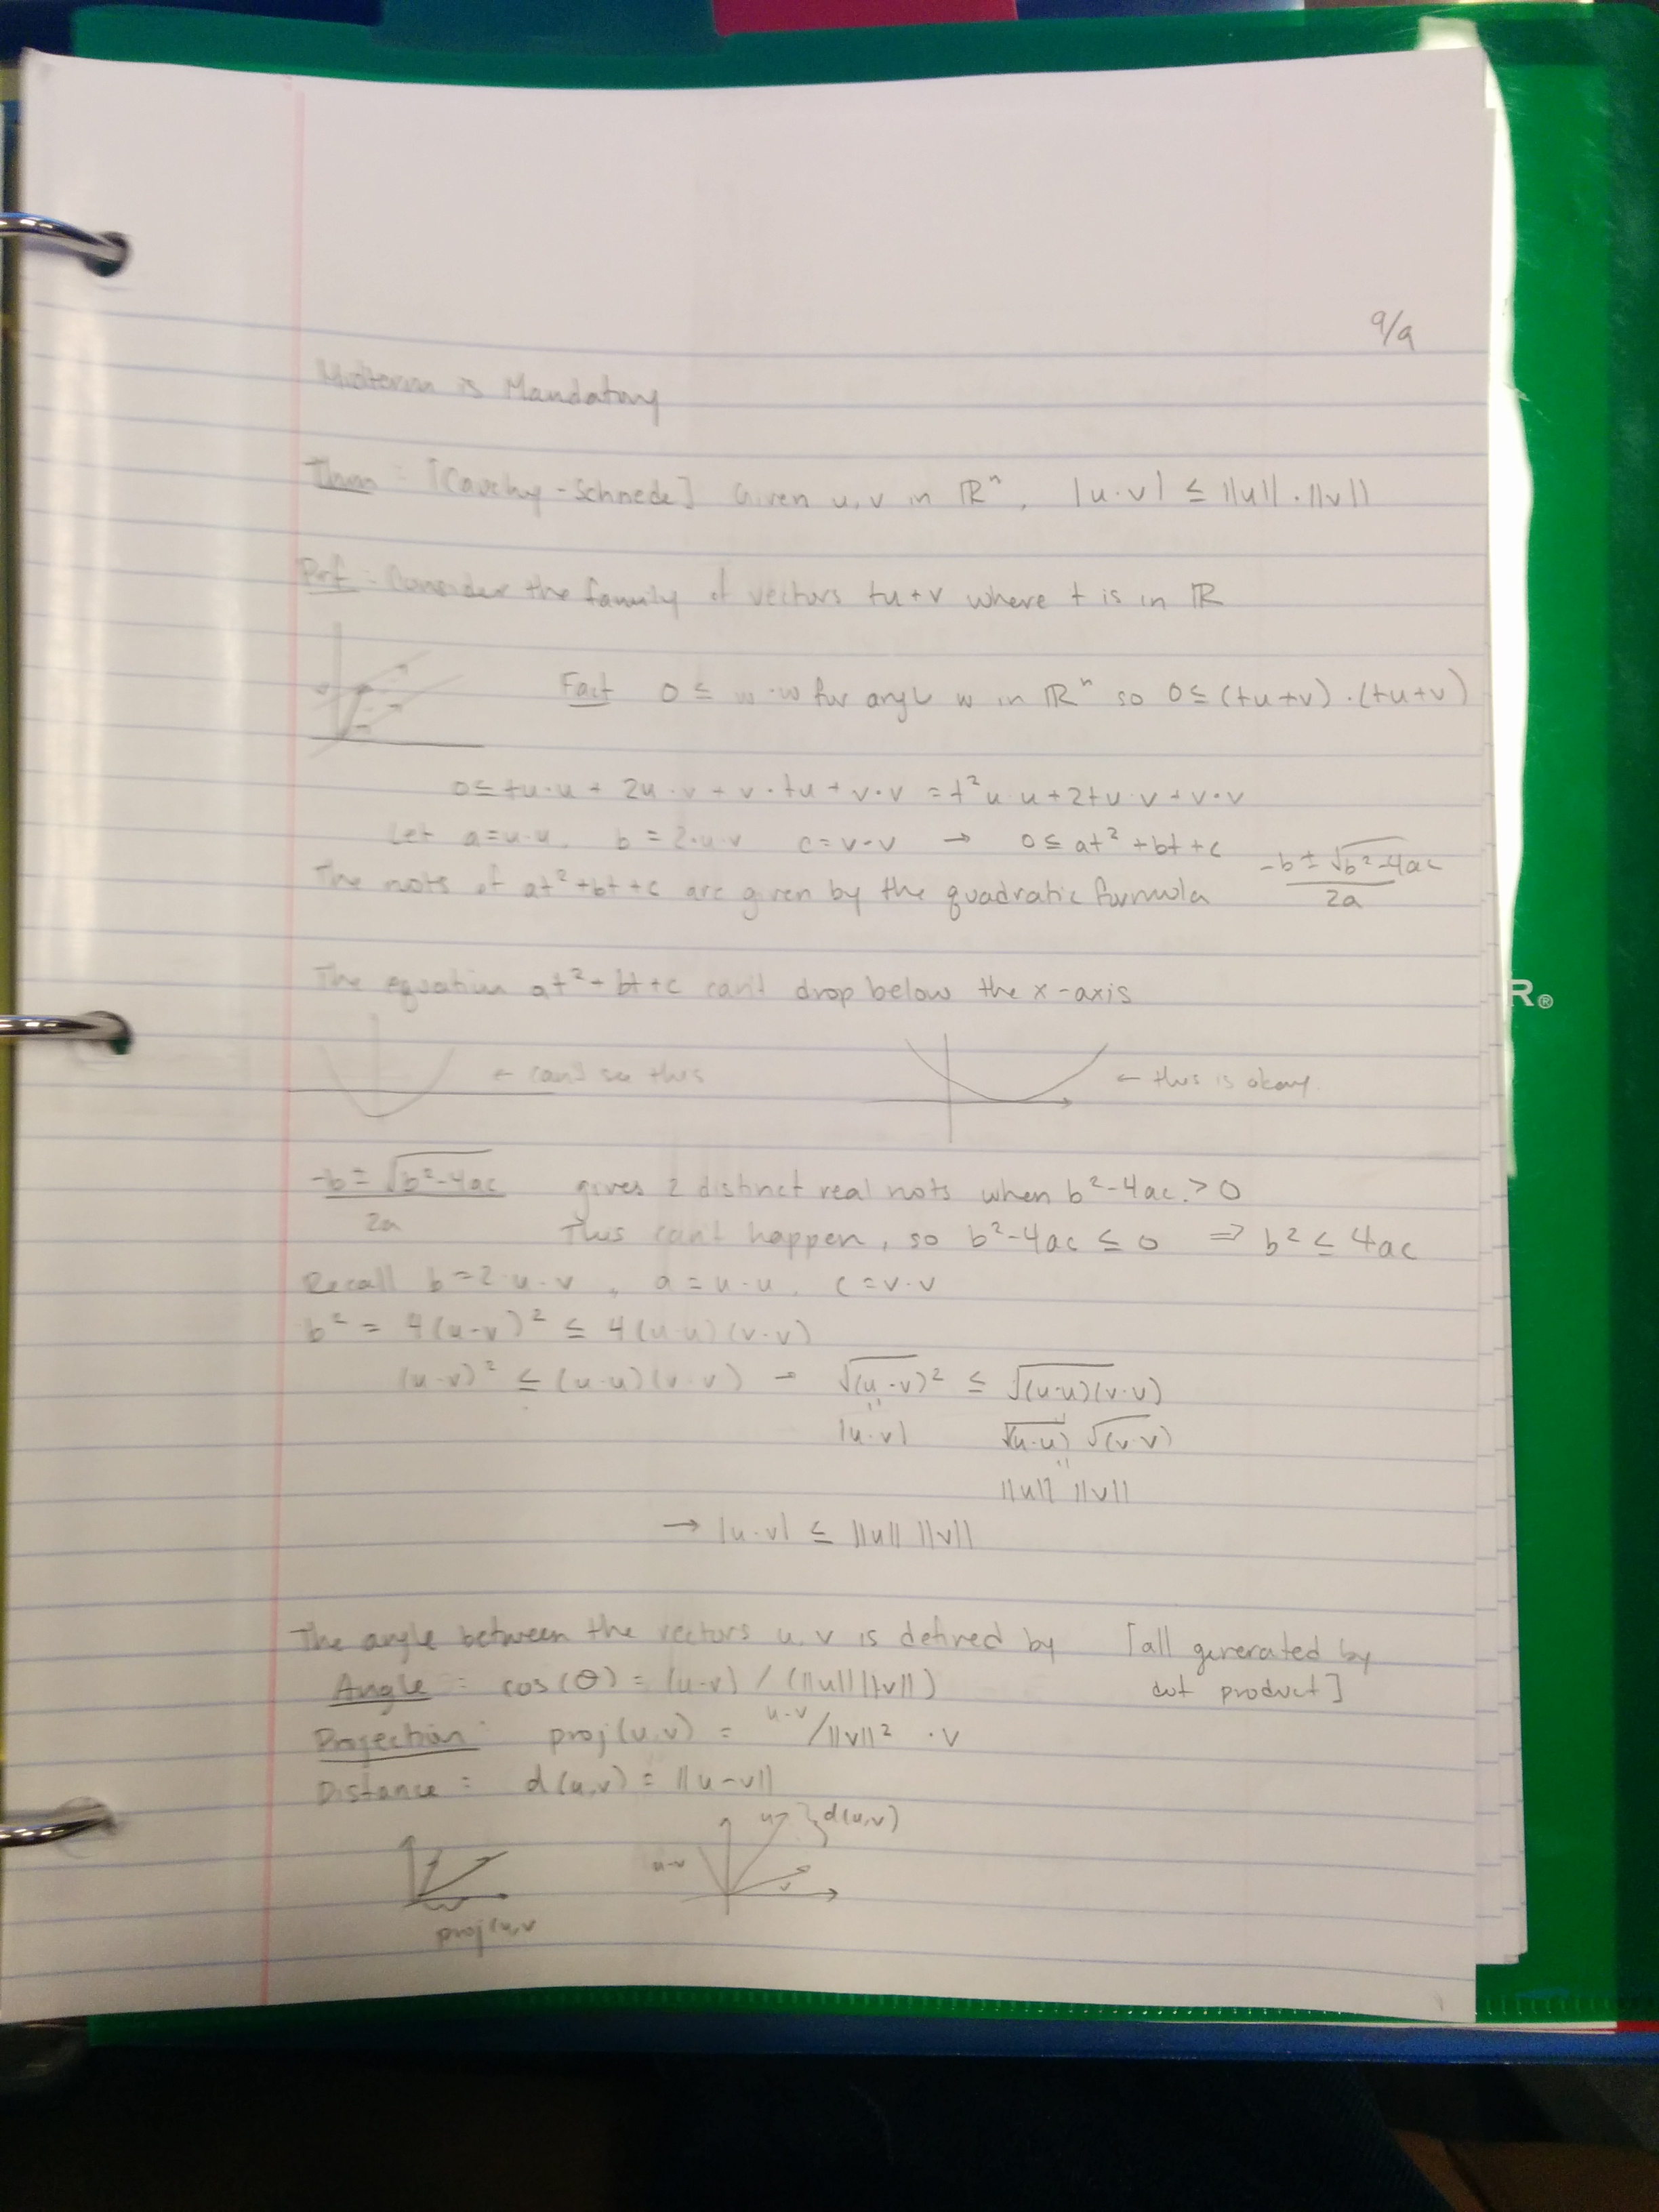 9/9
Midterm is Mandatory
Thm: [Cauchy-Schnede] Given u, v in ℝⁿ, |u·v| ≤ ||u||·||v||
Prf: Consider the family of vectors tu+v where t is in ℝ
Fact 0 ≤ w·w for any w in ℝⁿ so 0 ≤ (tu+v)·(tu+v)
0 ≤ tu·u + 2u·v + v·tu + v·v = t²u·u + 2tu·v + v·v
Let a=u·u, b=2·u·v c=v·v → 0 ≤ at²+bt+c
The roots of at²+bt+c are given by the quadratic formula -b±√b²-4ac / 2a
The equation at²+bt+c can't drop below the x-axis
← can't see this ← this is okay.
-b±√b²-4ac / 2a gives 2 distinct real roots when b²-4ac > 0
This can't happen, so b²-4ac ≤ 0 ⇒ b² ≤ 4ac
Recall b=2·u·v, a=u·u, c=v·v
b² = 4(u·v)² ≤ 4(u·u)(v·v)
(u·v)² ≤ (u·u)(v·v) → √(u·v)² ≤ √(u·u)(v·v)
|u·v| √(u·u) √(v·v)
||u|| ||v||
→ |u·v| ≤ ||u|| ||v||
The angle between the vectors u, v is defined by [all generated by
Angle: cos(θ) = (u·v) / (||u|| ||v||) dot product]
Projection: proj(u,v) = u·v/||v||² · v
Distance: d(u,v) = ||u-v||
u }d(u,v)
u-v v
proj(u,v
R®